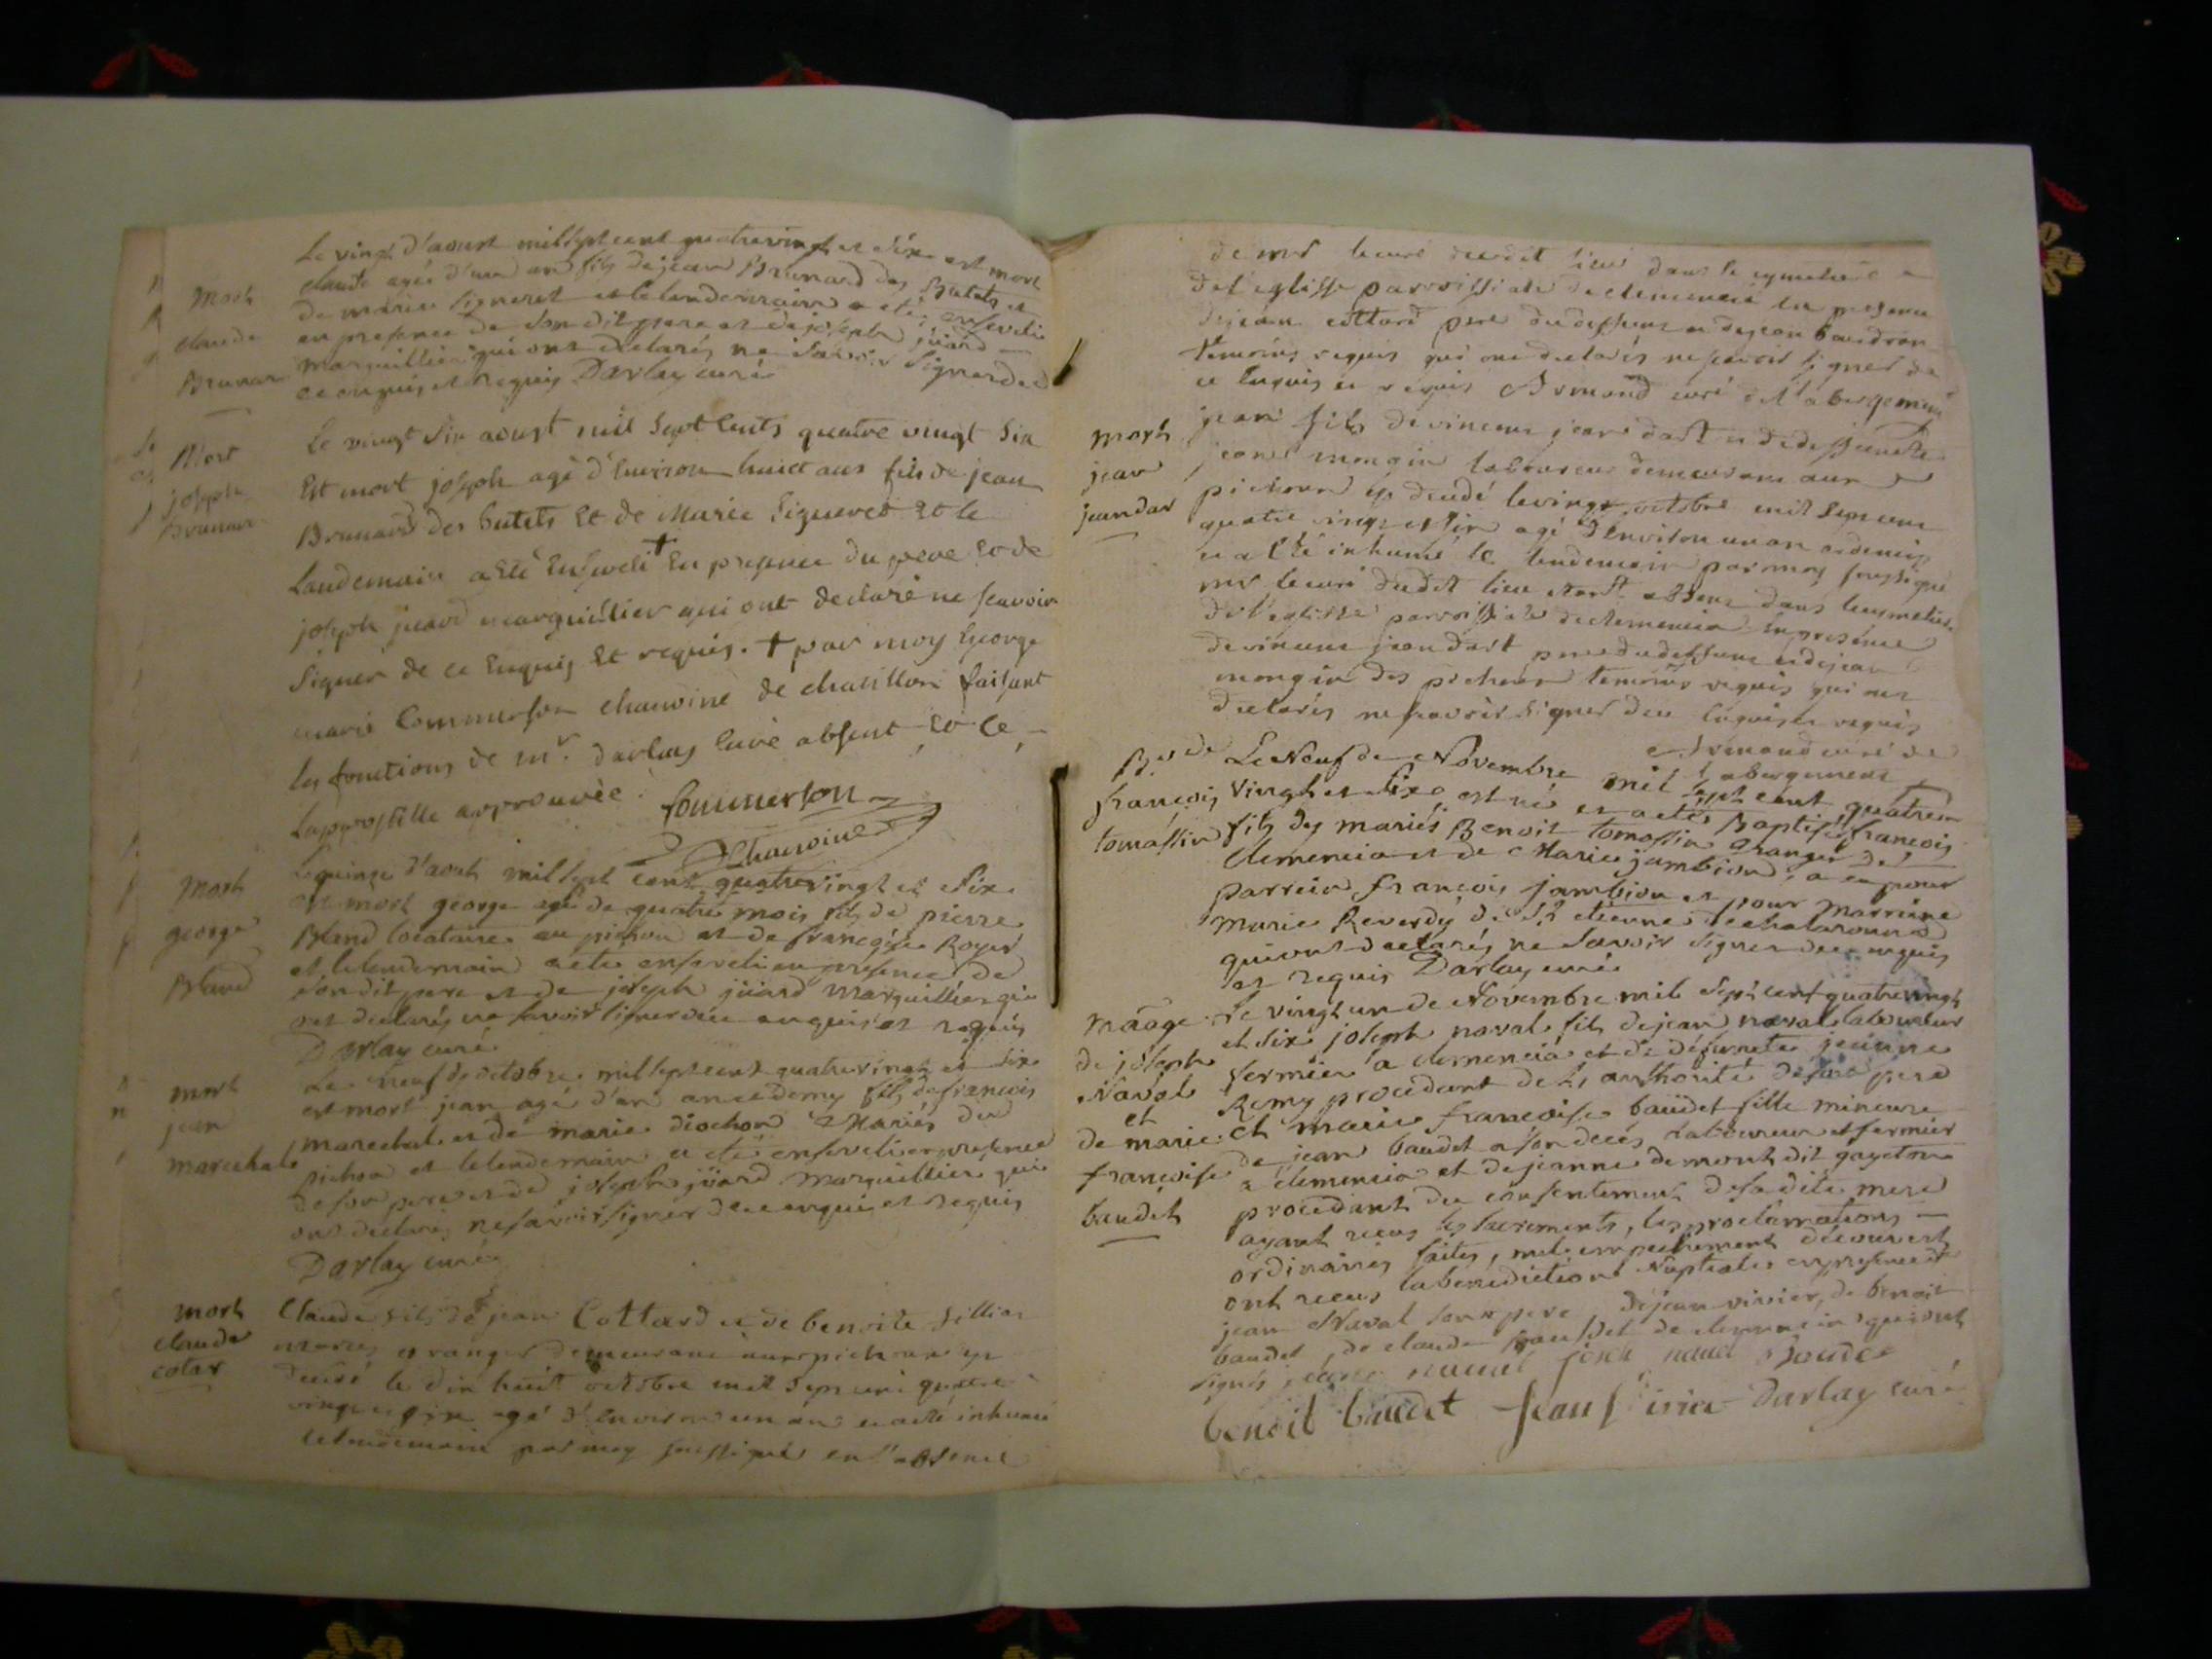 Le vingt d'aoust mil sept cent quatrevingt et six est mort
Mort claude agé d'un an fils de jean Brunard des Butets et
de marie signeret et le lendemain a eté enseveli
claude en presence de son dit pere et de joseph juard
Brunar marguillier qui ont declarés ne savoir signer de
ce enquis et requis Darlay curé
Le vingt six aoust mil sept cents quatre vingt six
Mort joseph Brunar
Est mort joseph agé d'Environ huict ans fils de jean
Brunard des butets Et de Marie Signeret Et le
Landemain a Eté Enseveli + En presence du pere Et de
joseph juard marguillier qui ont declaré ne scavoir
signer de ce Enquis Et requis. + par moy George
marie Commerson chanoine de chatillon faisant
les fonctions de mr. darlay Curé absent Et ce
Lapostille approuvée. Commerson
Chanoine
Le quinze d'aout mil sept cent quatrevingt et six
Mort est mort george agé de quatre mois fils de pierre
george Bland locataire au pichou et de françoise Royer
et le lendemain a eté enseveli en presence de
Bland son dit pere et de joseph juard marguillier qui
ont declarés ne savoir signer de ce enquis et requis
Darlay curé
Le neuf d'octobre mil sept cent quatrevingt et six
mort est mort jean agé d'un an et demy fils de françois
jean marechal et de marie diochon Mariés du
marechal pichou et le lendemain a eté enseveli en presence
de son pere et de joseph juard marguillier qui
ont declarés ne savoir signer de ce enquis et requis
Darlay curé
mort Claude fils de jean Cottard et de benoite
claude mariés granger demeurant aux pichoux
cotar decedé le dix huit octobre mil sept cent quatre
vingt et six agé d'environ un an et a eté inhumé
le lendemain par moy soussigné en l'absence
de mr le curé dudit lieu dans le cymetiere
de l'eglisse parroissiale de clemencia en presence
de jean cottard pere du deffunt et de jean
temoins requis qui ont declarés ne scavoir signer de
ce enquis et requis Armand curé de l'abergement
mort jean fils de vincent jeandart et de deffuncte
jean mongin laboureur demeurant aux
jeandar pichoux decedé le vingt octobre mil sept cent
quatre vingt et six agé d'environ un an et demis
et a eté inhumé le lendemain par moy soussigné
mr le curé dudit lieu etant absent dans le cymetiere
de l'eglisse parroissiale de clemencia en presence
de vincent jeandart pere du deffunt et de jean
mongin des pichoux temoins requis qui ont
declarés ne scavoir signer de ce enquis et requis
Armand curé de
l'abergement
Le Neuf de Novembre mil sept cent quatre
françois vingt et six est né et a eté Baptisé françois
tomassin fils des mariés Benoit tomassin Granger de
clemencia et de Marie jambion, a eu pour
parrein françois jambion et pour marraine
Marie Reverdy de St etienne de chalaronne
qui ont declarés ne savoir signer de ce enquis
et requis Darlay curé
Mariage Le vingt un de Novembre mil sept cent quatrevingt
de joseph et six joseph naval fils de jean naval laboureur
Naval fermier a clemencia et de defuncte jeanne
et Remy procedant de l'authorité de son pere
de marie et marie françoise baudet fille mineure
françoise de jean baudet a son decés laboureur et fermier
baudet a clemencia et de jeanne demont dit gayeton
procedant du consentement de sa dite mere
ayant recus les sacrements, les proclamations
ordinaires faites, nul empechement découvert
ont recus la benediction Nuptiale en presence de
jean Naval son pere, de jean vivier, de benoit
baudet, de claude de clemencia qui ont
signés
benoit baudet Darlay curé